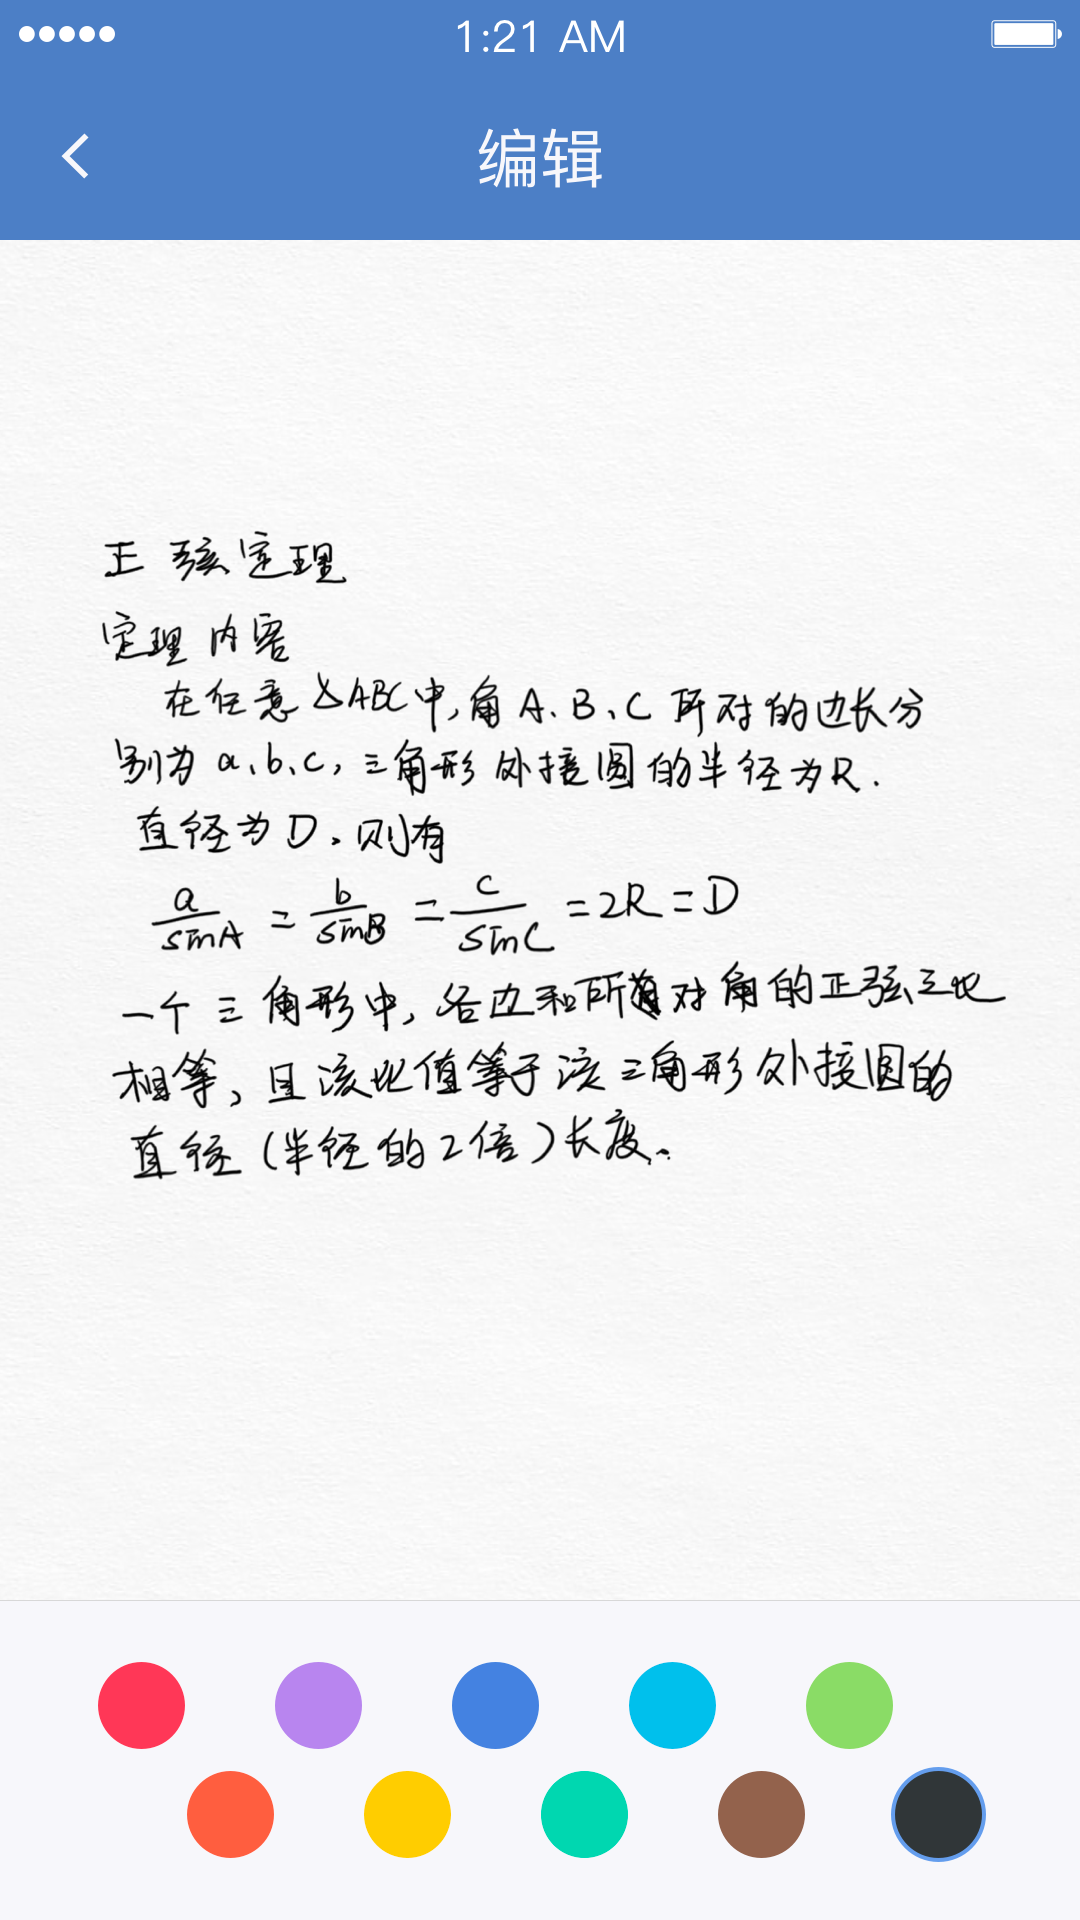 1:21 AM
编辑
正弦定理
定理内容
在任意△ABC中,角A、B、C所对的边长分
别为a、b、c,三角形外接圆的半径为R.
直径为D.则有
a/sinA = b/sinB = c/sinC = 2R = D
一个三角形中,各边和所对角的正弦之比
相等,且该比值等于该三角形外接圆的
直径(半径的2倍)长度.